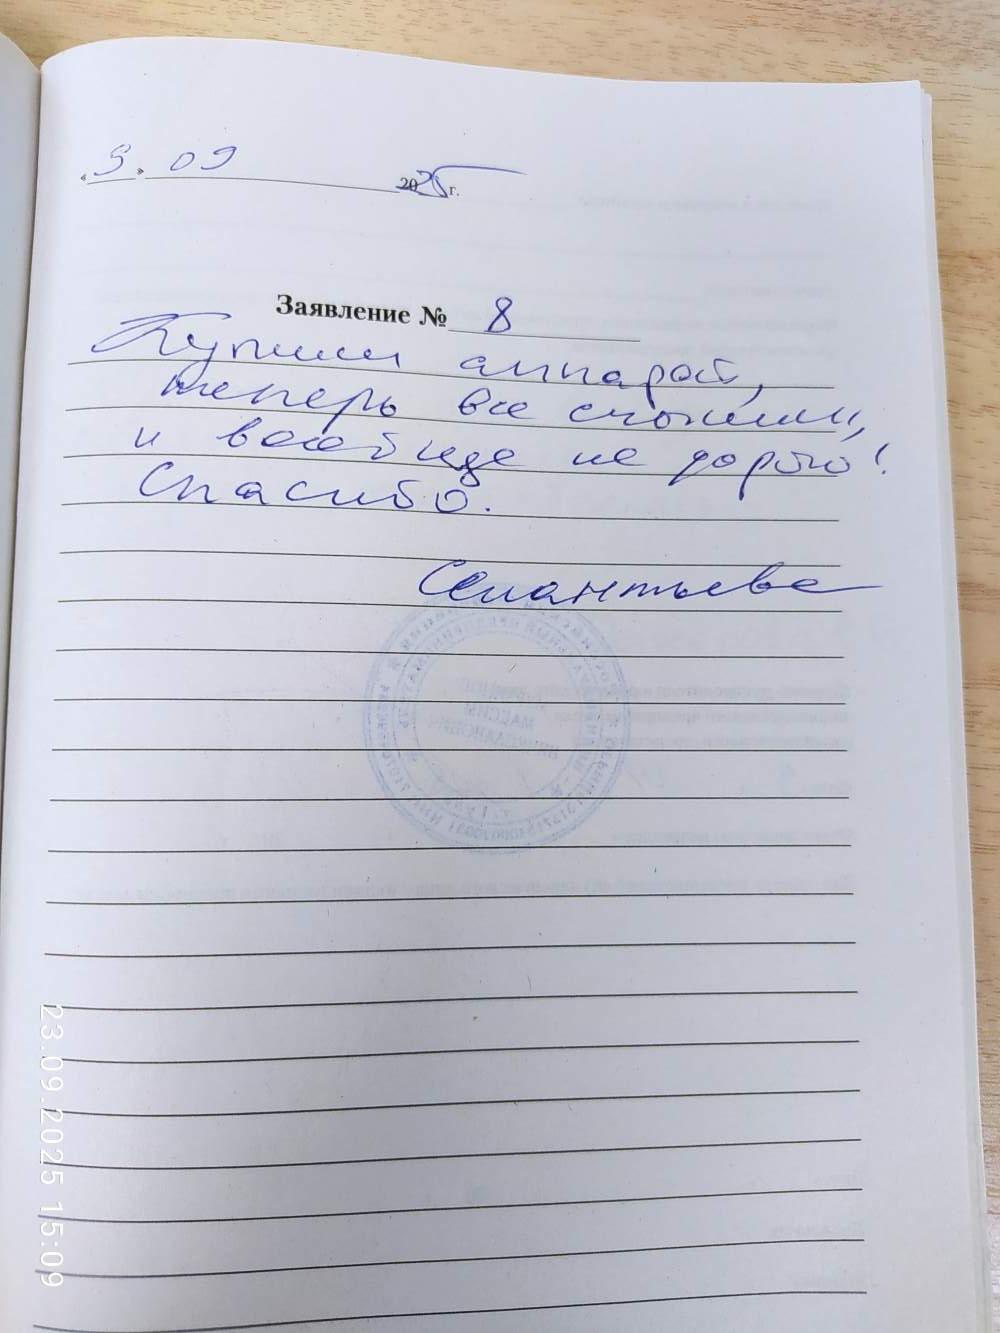 « 9 » 09 2025 г.
Заявление № 8
Купили аппарат,
теперь все слышим,
и вообще не дорого!
Спасибо.
23.09.2025 15:09